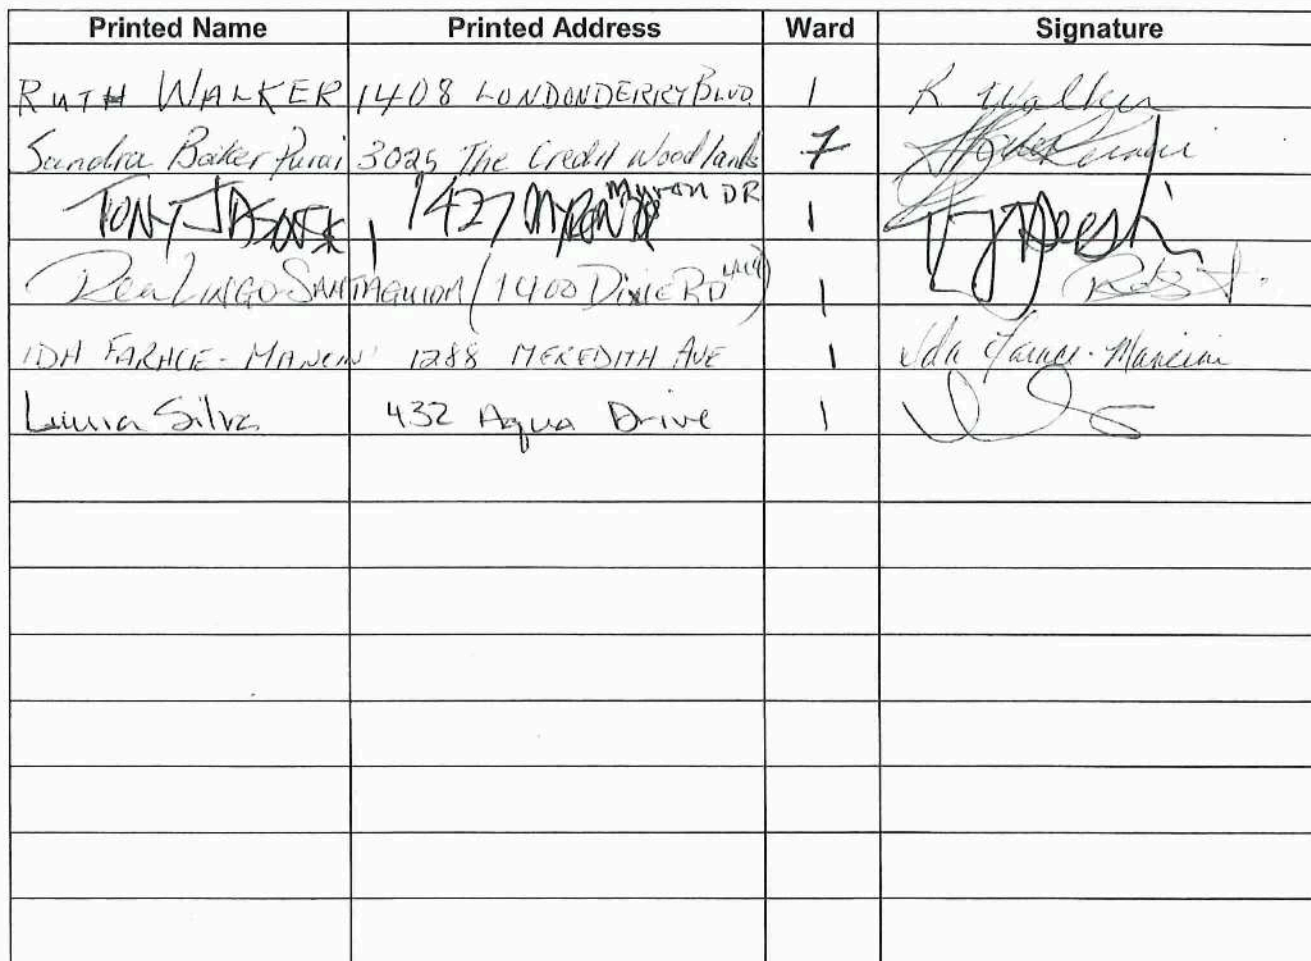 Printed Name Printed Address Ward Signature
RUTH WALKER 1408 LONDONDERRY BLVD. 1 R Walker
Sandra Baker Purai 3025 The Credit Woodlands 7
TONY 1427 Myron DR 1
Rea LINGO-SANTAGUIDA 1400 DIXIE RD 1
IDA FARACE-MANCINI 1288 MEREDITH AVE 1 Ida Farace-Mancini
Silva 432 Aqua Drive 1